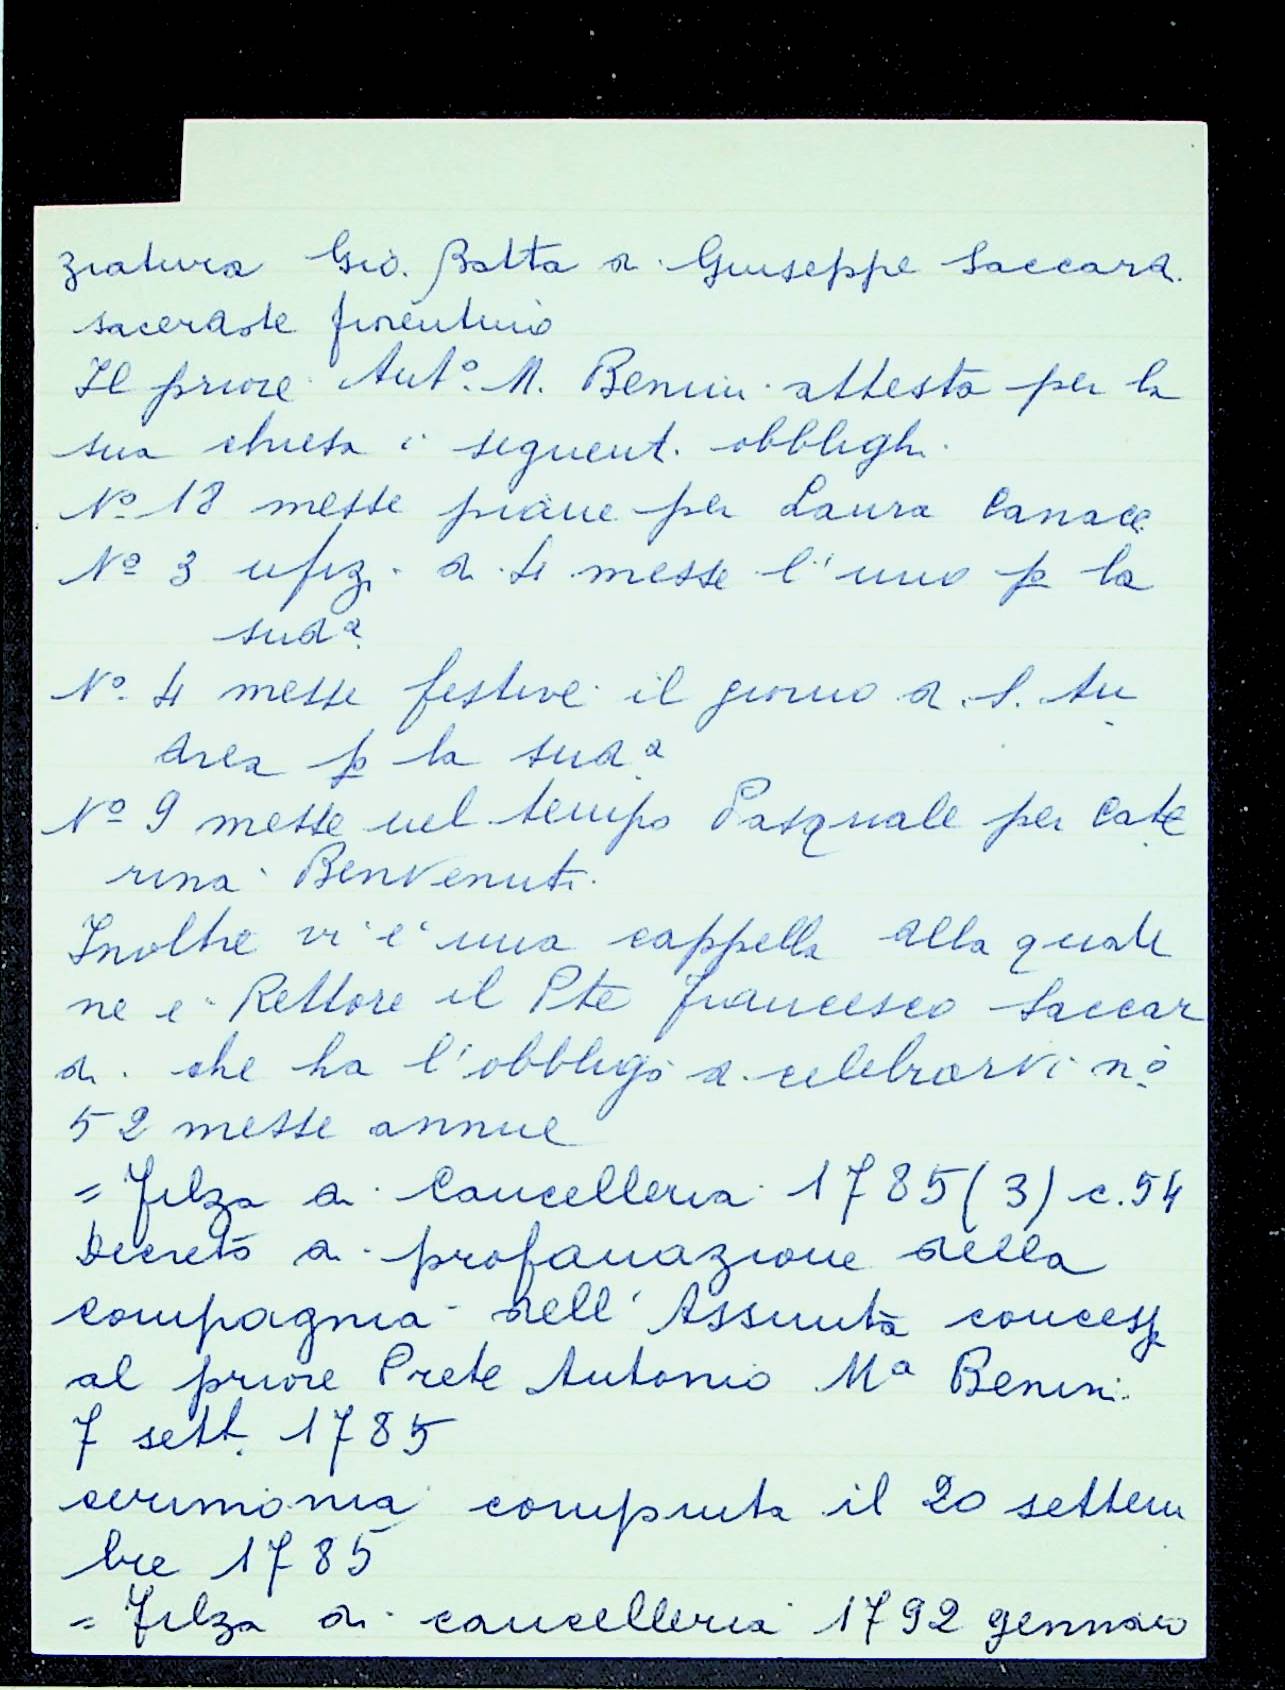 ziatura Gio. Batta di Giuseppe Saccardi
sacerdote fiorentino
Il priore Antº. M. Benini attesta per la
sua chiesa i seguenti obblighi
Nº 18 messe piane per Laura Canacc
Nº 3 ufizi di 4 messe l'uno p la
sudª
Nº 4 messe festive il giorno di S. An
drea p la sudª
Nº 9 messe nel tempo Pasquale per Cate
rina Benvenuti.
Inoltre vi è una cappella alla quale
ne è Rettore il Pte Francesco Saccar
di che ha l'obbligo di celebrarvi nº
52 messe annue
= Filza di Cancelleria 1785 (3) c. 54
Decreto di profanazione della
compagnia dell'Assunta concess
al priore Prete Antonio Mª Benini
7 sett. 1785
cerimonia compiuta il 20 settem
bre 1785
= Filza di cancelleria 1792 gennaio